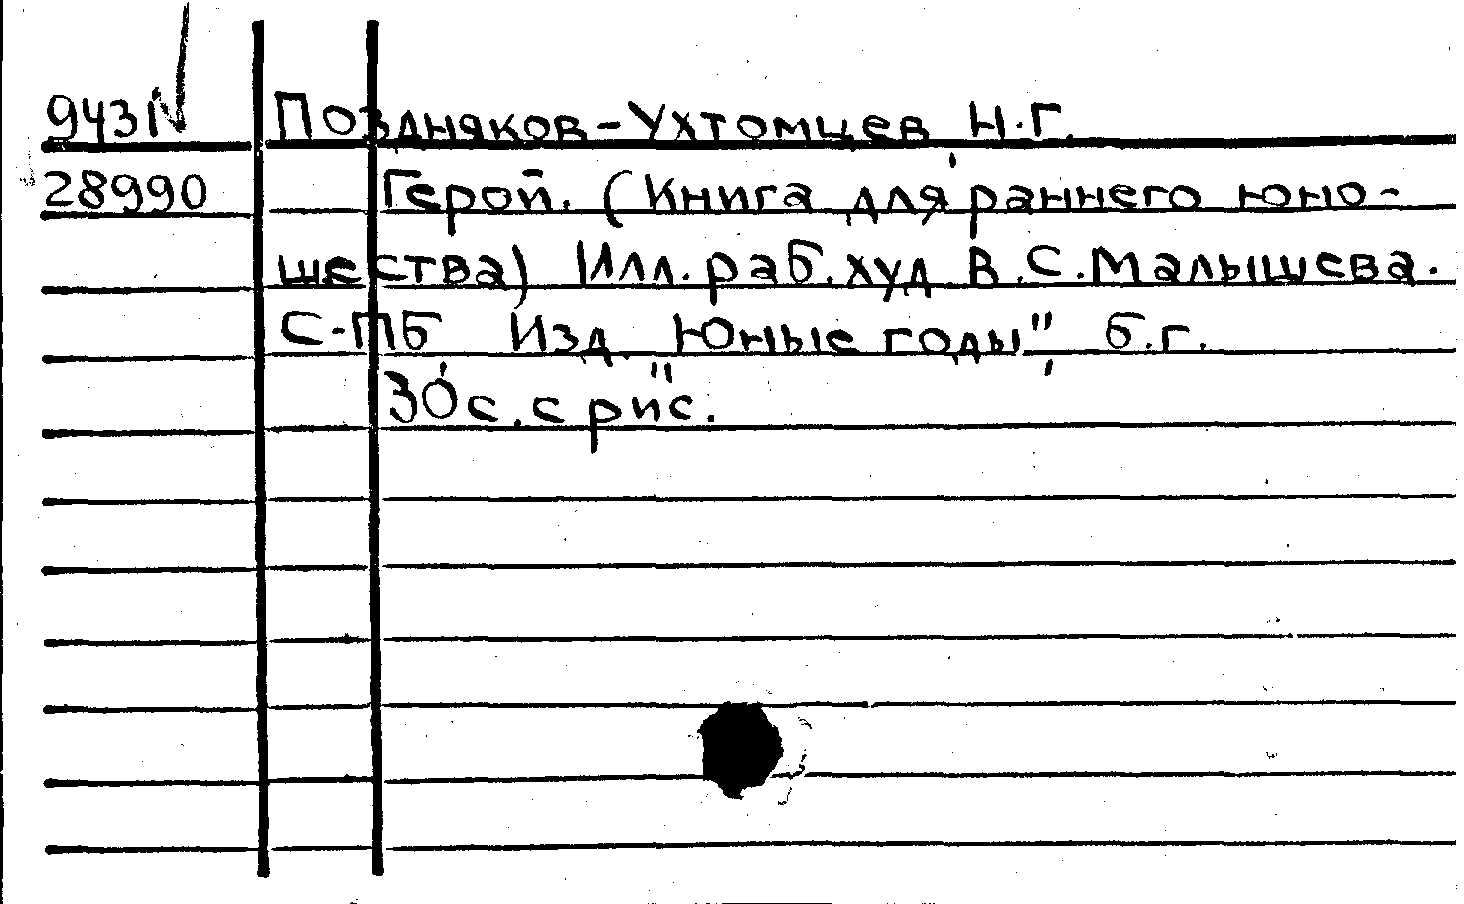 943N Поздняков-Ухтомцев Н.Г.
28990 Герой. (Книга для раннего юно-
шества) Илл. раб. худ. В.С. Малышева.
С-ПБ, Изд. "Юные годы", б.г.
30 с. с рис.